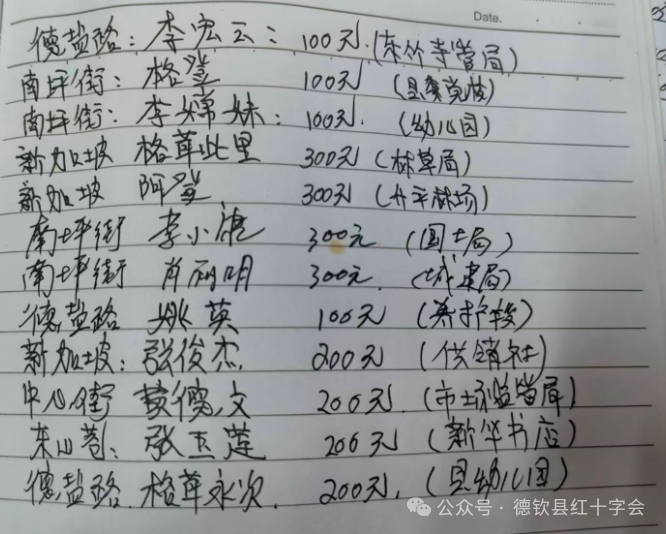 Date.
德盐路：李宏云：100元.（东竹寺管局）
南坪街：格登 100元（县委党校）
南坪街：李娣妹：100元.（幼儿园）
新加坡 格茸此里 300元（林草局）
新加坡 阿登 300元（升平林场）
南坪街 李小 300元（国土局）
南坪街 肖丽明 300元.（城建局）
德盐路 姚英 100元（养护段）
新加坡：张俊杰. 200元（供销社）
中心街 德文 200元.（市场监管局）
东山巷：张玉莲 200元（新华书店）
德盐路. 格茸永次. 200元.（县幼儿园）
公众号·德钦县红十字会